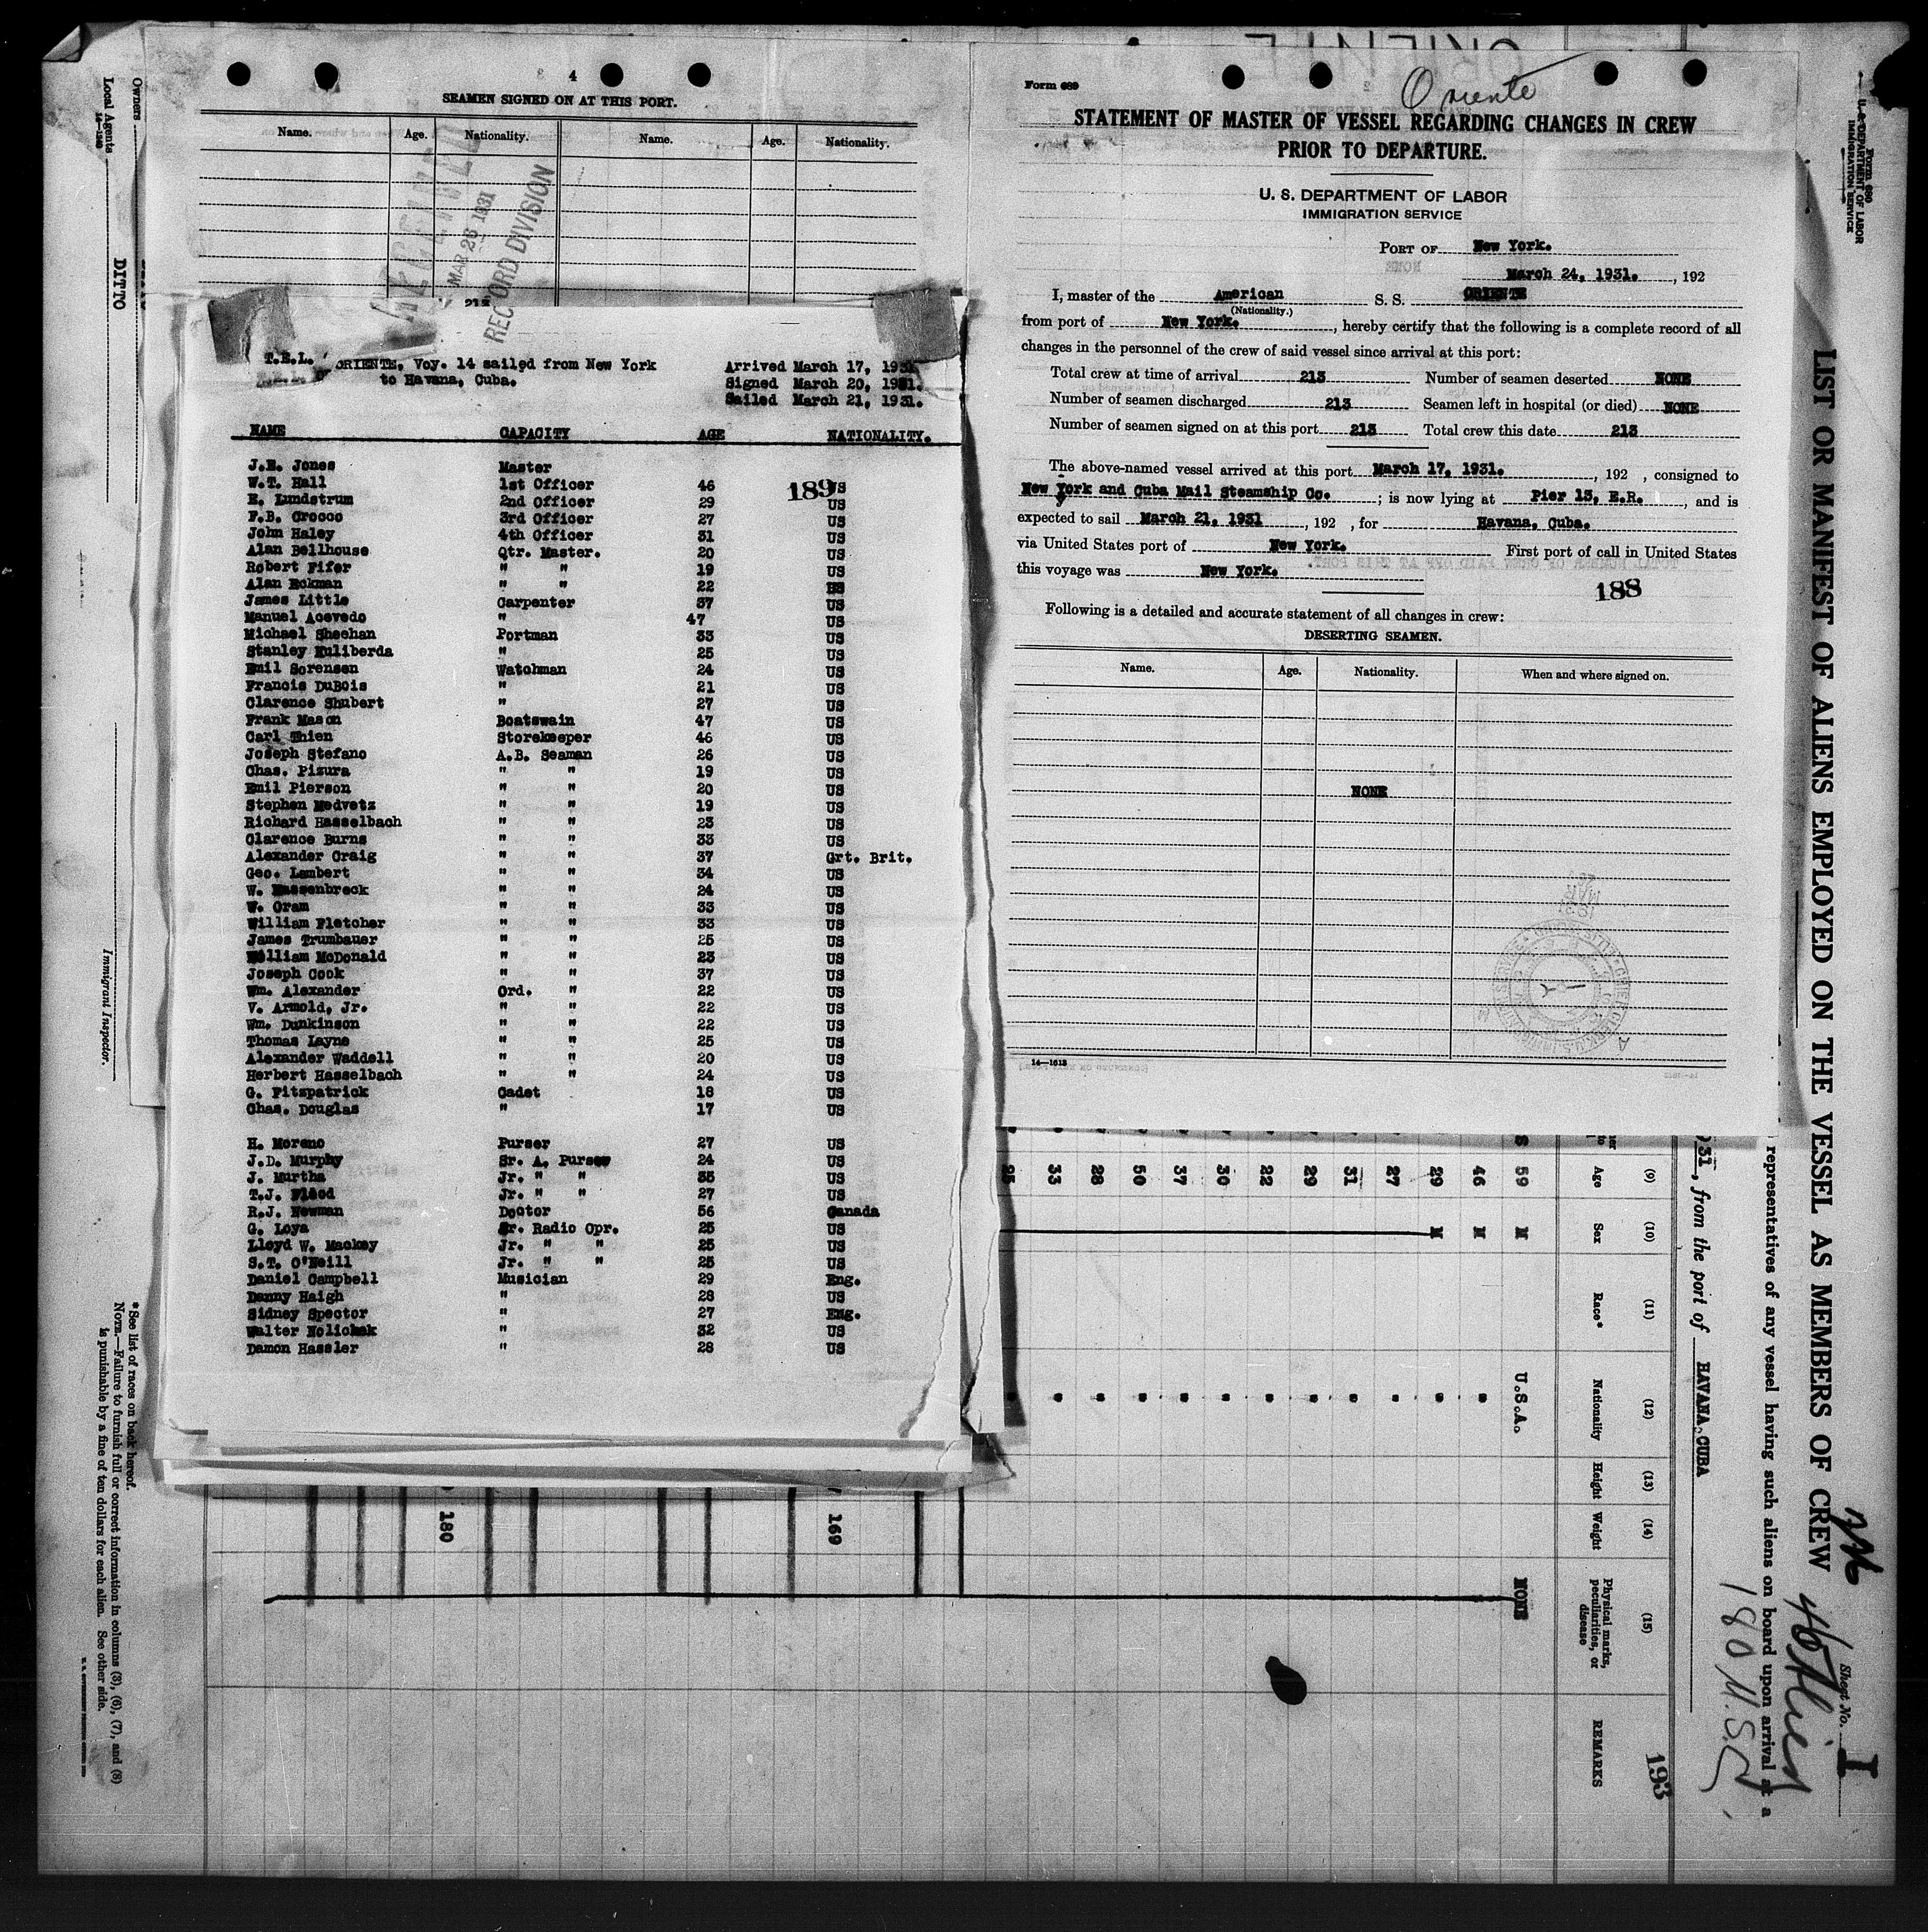 4
SEAMEN SIGNED ON AT THIS PORT.
Name. Age. Nationality. Name. Age. Nationality.
RECEIVED
MAR 26 1931
RECORD DIVISION
213
T.E.L. ORIENTE, Voy. 14 sailed from New York
to Havana, Cuba.
Arrived March 17, 1931.
Signed March 20, 1931.
Sailed March 21, 1931.
NAME CAPACITY AGE NATIONALITY.
189
J.E. Jones Master
W.T. Hall 1st Officer 46 US
E. Lundstrum 2nd Officer 29 US
F.B. Crocco 3rd Officer 27 US
John Haley 4th Officer 31 US
Alan Bellhouse Qtr. Master. 20 US
Robert Fifer " " 19 US
Alan Eckman " " 22 US
James Little Carpenter 37 US
Manuel Acevedo " 47 US
Michael Sheehan Portman 33 US
Stanley Kuliberda " 25 US
Emil Sorensen Watchman 24 US
Francis DuBois " 21 US
Clarence Shubert " 27 US
Frank Mason Boatswain 47 US
Carl Thien Storekeeper 46 US
Joseph Stefano A.B. Seaman 26 US
Chas. Pizura " " 19 US
Emil Pierson " " 20 US
Stephen Medvetz " " 19 US
Richard Hasselbach " " 23 US
Clarence Burns " " 33 US
Alexander Craig " " 37 Grt. Brit.
Geo. Lambert " " 34 US
W. Massenbreck " " 24 US
W. Gram " " 33 US
William Fletcher " " 33 US
James Trumbauer " " 25 US
William McDonald " " 23 US
Joseph Cook " " 37 US
Wm. Alexander Ord. " 22 US
V. Armold, Jr. " " 22 US
Wm. Dunkinson " " 22 US
Thomas Layne " " 25 US
Alexander Waddell " " 20 US
Herbert Hasselbach " " 24 US
G. Fitzpatrick Cadet 18 US
Chas. Douglas " 17 US
H. Moreno Purser 27 US
J.D. Murphy Sr. A. Purser 24 US
J. Murtha Jr. " " 35 US
T.J. Flood Jr. " " 27 US
R.J. Newman Doctor 56 Canada
G. Loya Sr. Radio Opr. 25 US
Lloyd W. Mackay Jr. " " 25 US
S.T. O'Neill Jr. " " 25 US
Daniel Campbell Musician 29 Eng.
Danny Haigh " 28 US
Sidney Spector " 27 Eng.
Walter Nolichek " 32 US
Damon Hassler " 28 US
Form 689
Oriente
STATEMENT OF MASTER OF VESSEL REGARDING CHANGES IN CREW
PRIOR TO DEPARTURE.
U. S. DEPARTMENT OF LABOR
IMMIGRATION SERVICE
PORT OF New York.
March 24, 1931. , 192
I, master of the American S. S. ORIENTE
(Nationality.)
from port of New York. , hereby certify that the following is a complete record of all
changes in the personnel of the crew of said vessel since arrival at this port:
Total crew at time of arrival 213 Number of seamen deserted NONE
Number of seamen discharged 213 Seamen left in hospital (or died) NONE
Number of seamen signed on at this port 213 Total crew this date 213
The above-named vessel arrived at this port March 17, 1931. , 192 , consigned to
New York and Cuba Mail Steamship Co. ; is now lying at Pier 13, E.R. , and is
expected to sail March 21, 1931 , 192 , for Havana, Cuba.
via United States port of New York. First port of call in United States
this voyage was New York.
188
Following is a detailed and accurate statement of all changes in crew:
DESERTING SEAMEN.
Name. Age. Nationality. When and where signed on.
NONE
14—1613
Form 680
U. S. DEPARTMENT OF LABOR
IMMIGRATION SERVICE
LIST OR MANIFEST OF ALIENS EMPLOYED ON THE VESSEL AS MEMBERS OF CREW
Sheet No. I
46 Alien
180 U.S.C.
representatives of any vessel having such aliens on board upon arrival at a
31, from the port of HAVANA, CUBA
193
(9) (10) (11) (12) (13) (14) (15)
Age Sex Race* Nationality Height Weight Physical marks, peculiarities, or disease REMARKS
59 M U.S.A. NONE
46 M "
29 M "
27 "
31 "
29 "
22 "
30 "
37 "
50 "
28 "
33 "
25 "
169
180
Owners
Local Agents
14—1240
DITTO
Immigrant Inspector.
*See list of races on back hereof.
NOTE.—Failure to furnish full or correct information in columns (3), (6), (7), and (8)
is punishable by a fine of ten dollars for each alien. See other side.